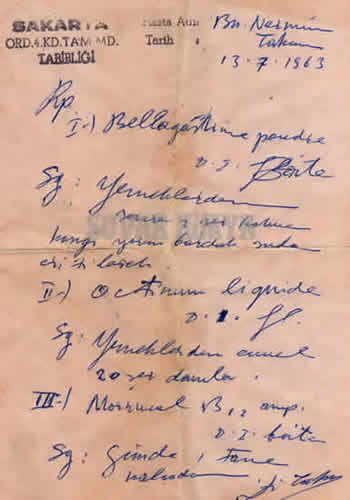 SAKARYA
ORD.4.KD.TAM.MD.
TABİBLİĞİ
Hasta Adı: Bn. Nermin
Takım
Tarih : 13.7.1963
Rp
I-) Bellagastrine poudre
D. I. Boite
Sg: Yemeklerden
sonra
yarım bardak suda
eritilecek
II-) Octinum liquide
D. I. fl.
Sg: Yemeklerden evvel
20 şer damla.
III-) B12 amp.
D. I. boite
Sg: Günde 1 tane